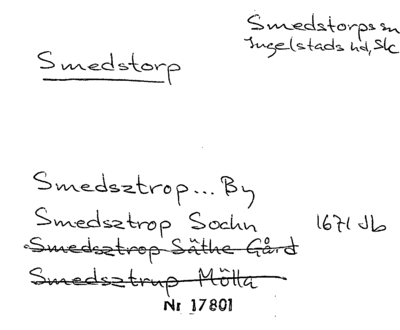 Smedstorps sn
Ingelstads hd, Sk
Smedstorp
Smedsztrop... By
Smedsztrop Sochn 1671 Jb
Smedsztrop Säthe Gård
Smedsztrup Mölla
Nr 17801